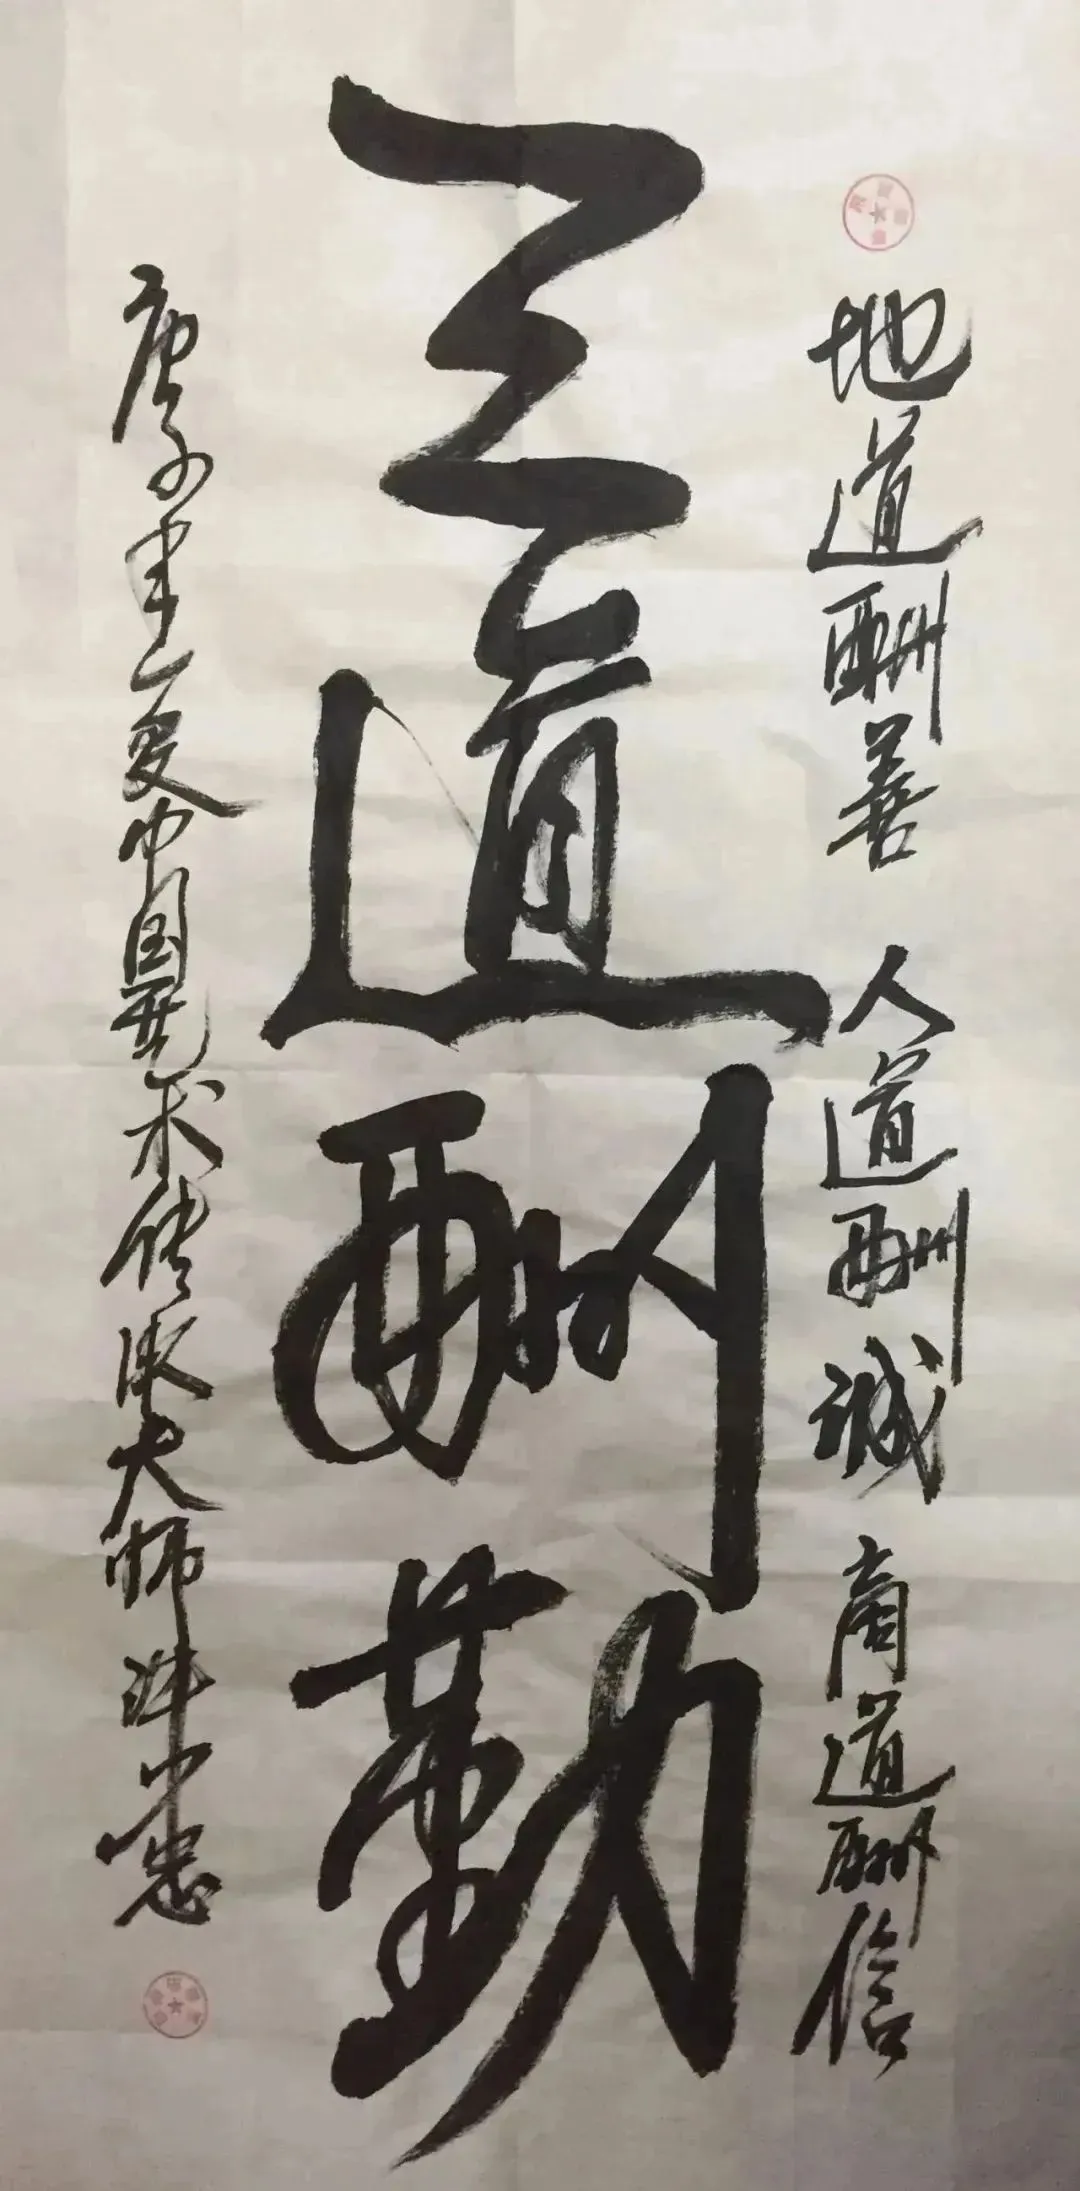 地道酬善 人道酬诚 商道酬信
天道酬勤
庚子年夏中国艺术传承大师